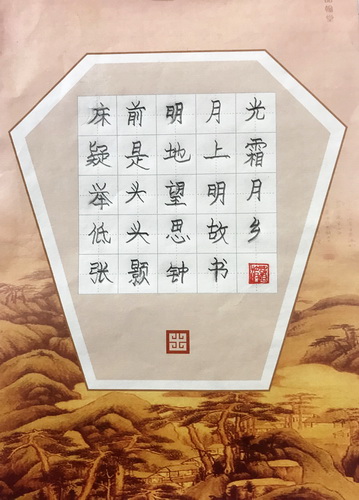 床前明月光
疑是地上霜
举头望明月
低头思故乡
张颢钟书